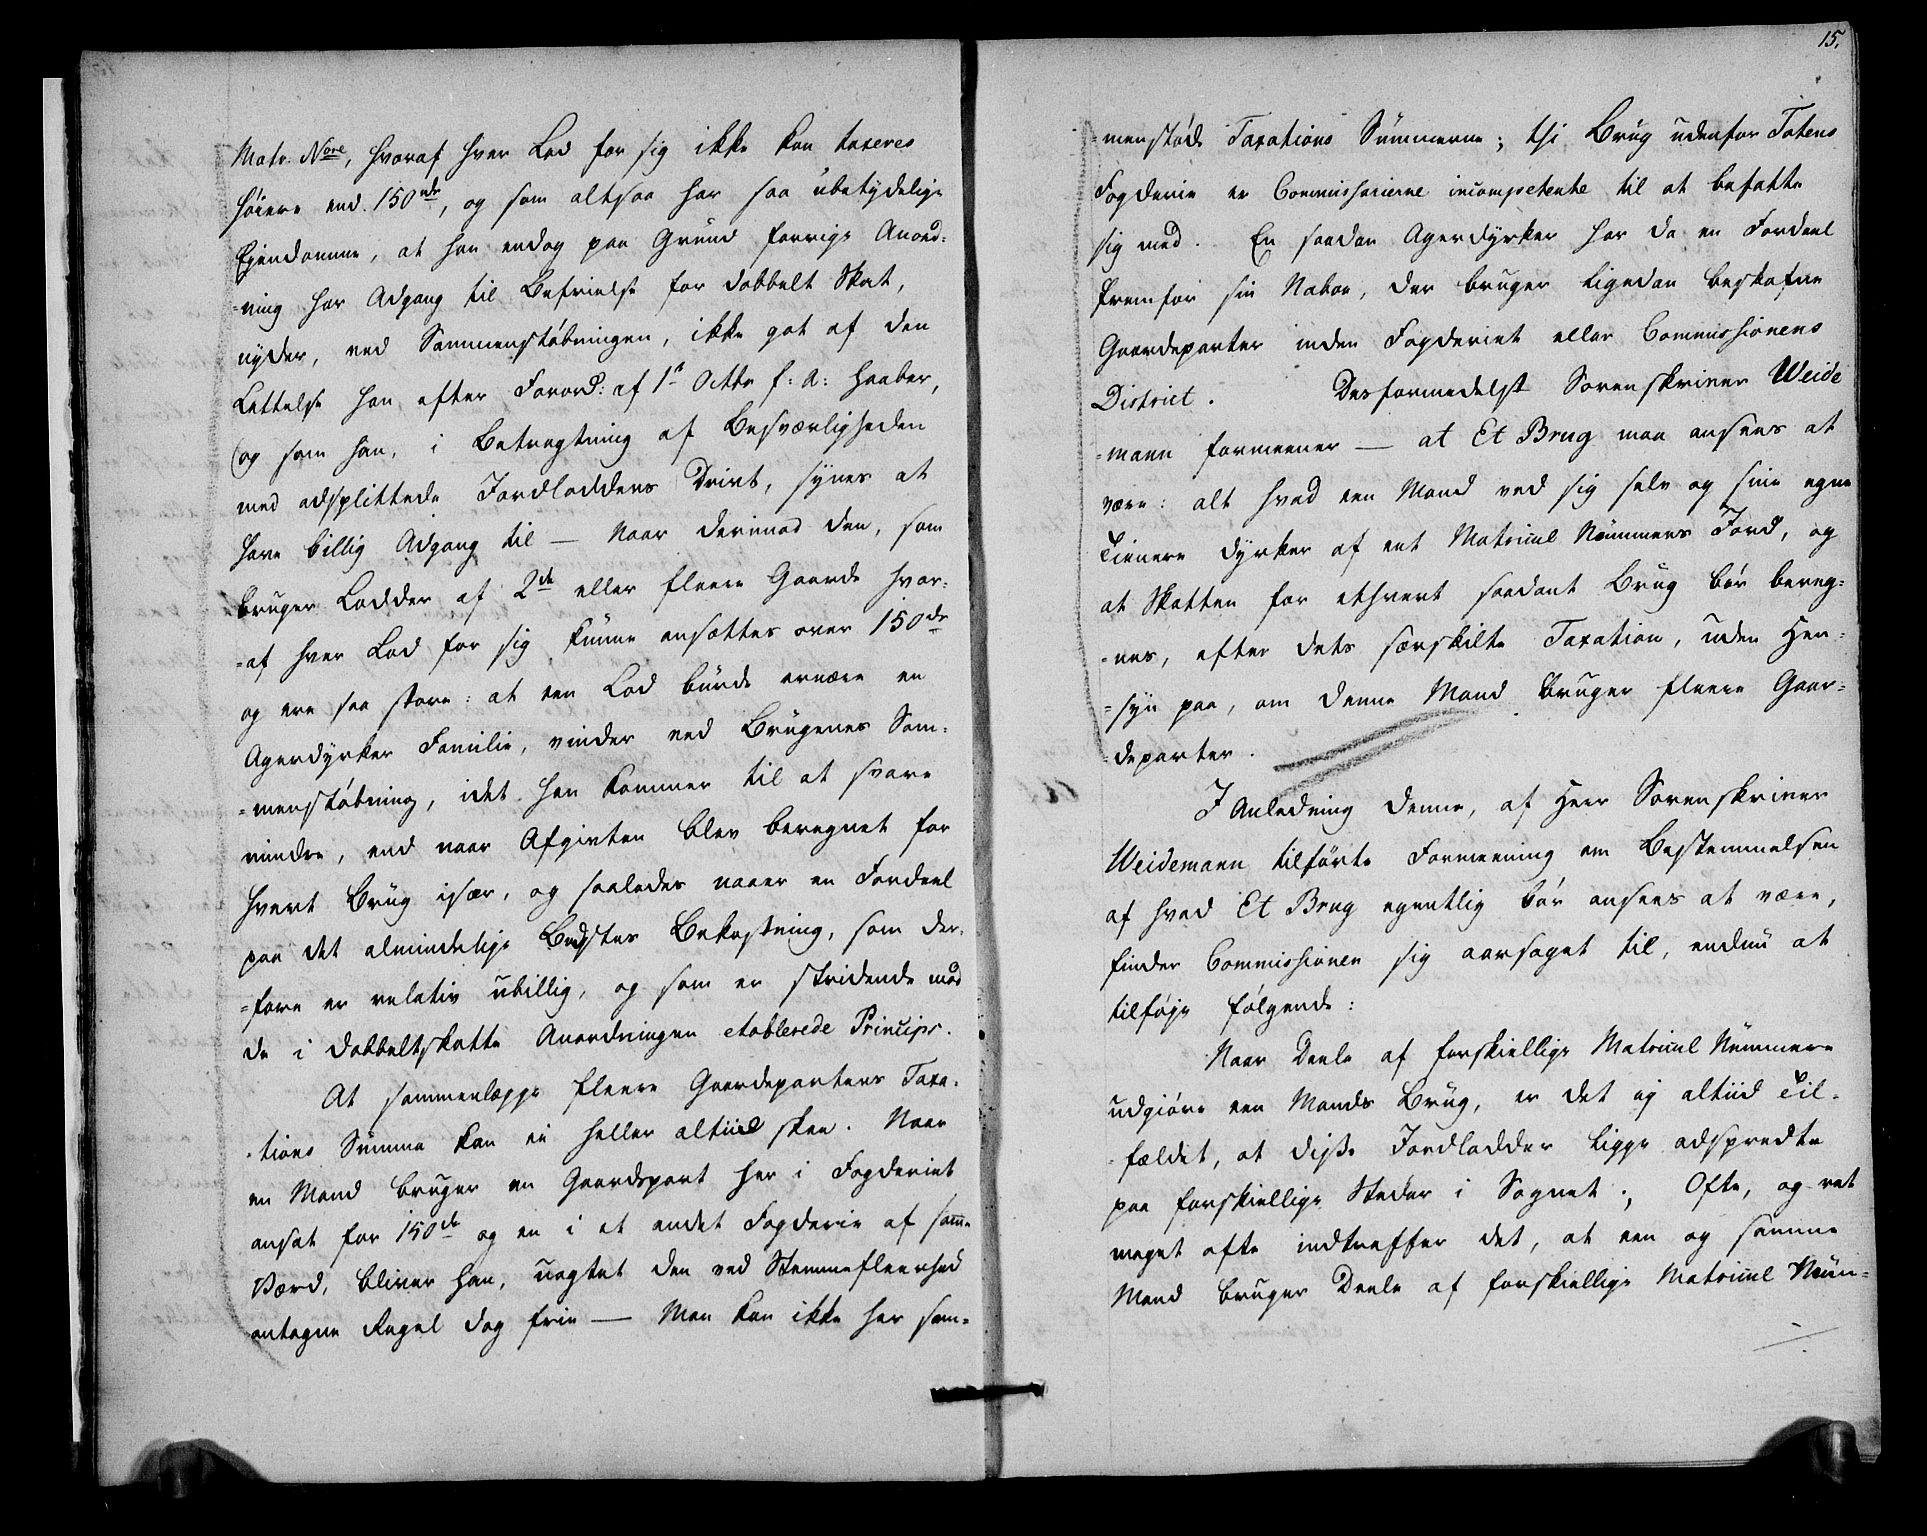 Matr. Nore, hvoraf hver Lod for sig ikke kan taxeres
høiere end 150 rdr, og som altsaa har saa ubetydelige
Ejendomme, at han endog paa Grund forrige Anord-
-ning har Adgang til Befrielse for dobbelt Skat,
nyder, ved Sammenstøbningen, ikke got af den
Lettelse han efter Forord: af 1ste Octbr f: A: haaber,
og som han, i Betragtning af Besværligheden
med adsplittede Jordlodders Drivt, synes at
have billig Adgang til — Naar derimod den, som
bruger Lodder af 2de eller fleere Gaarde hvor-
-af hver Lod for sig kunne ansættes over 150 dr
og ere saa store: at een Lod burde ernære en
Agerdyrker Familie, vinder ved Brugenes Sam-
-menstøbning, idet han kommer til at svare
mindre, end naar Afgivten blev beregnet for
hvert Brug især, og saaledes naaer en Fordeel
paa det almindelige Bedstes Bekostning, som der-
-fore er relativ ubillig, og som er stridende mod
de i dobbeltskatte Anordningen etablerede Princips.
At sammenlægge fleere Gaardeparters Taxa-
-tions Summa kan ei heller altiid skee. Naar
en Mand bruger en Gaardspart her i Fogderiet
ansat for 150 dr og en i et andet Fogderie af samme
Værd, bliver han, uagtet den ved Stemmefleerhed
antagne Regel dog frie — Man kan ikke her sam-
15.
-menstøde Taxations Summerne; thi Brug udenfor Totens
Fogderie er Commissarierne incompetente til at befatte
sig med. En saadan Agerdyrker har da en Fordeel
fremfor sin Naboe, der bruger ligedan beskafne
Gaardeparter inden Fogderiet eller Commissionens
District. Desformedelst Sorenskriver Weide
-mann formeener — at Et Brug maa ansees at
være: alt hvad een Mand ved sig selv og sine egne
Tienere dyrker af eet Matricul Nummers Jord, og
at Skatten for ethvert saadant Brug bør bereg-
-nes, efter dets særskilte Taxation, uden Hen-
-syn paa, om denne Mand bruger fleere Gaar-
-departer.
I Anledning denne, af Herr Sorenskriver
Weidemann tilførte Formeening om Bestemmelsen
af hvad Et Brug egentlig bør ansees at være,
finder Commissionen sig aarsaget til, endnu at
tilføje følgende:
Naar Deele af forskiellige Matricul Nummere
udgiøre een Mands Brug, er det ej altiid Til-
-fældet, at disse Jordlodder ligge adspredte
paa forskiellige Steder i Sognet; Ofte, og ret
meget ofte indtreffer det, at een og samme
Mand bruger Deele af forskiellige Matricul Num-